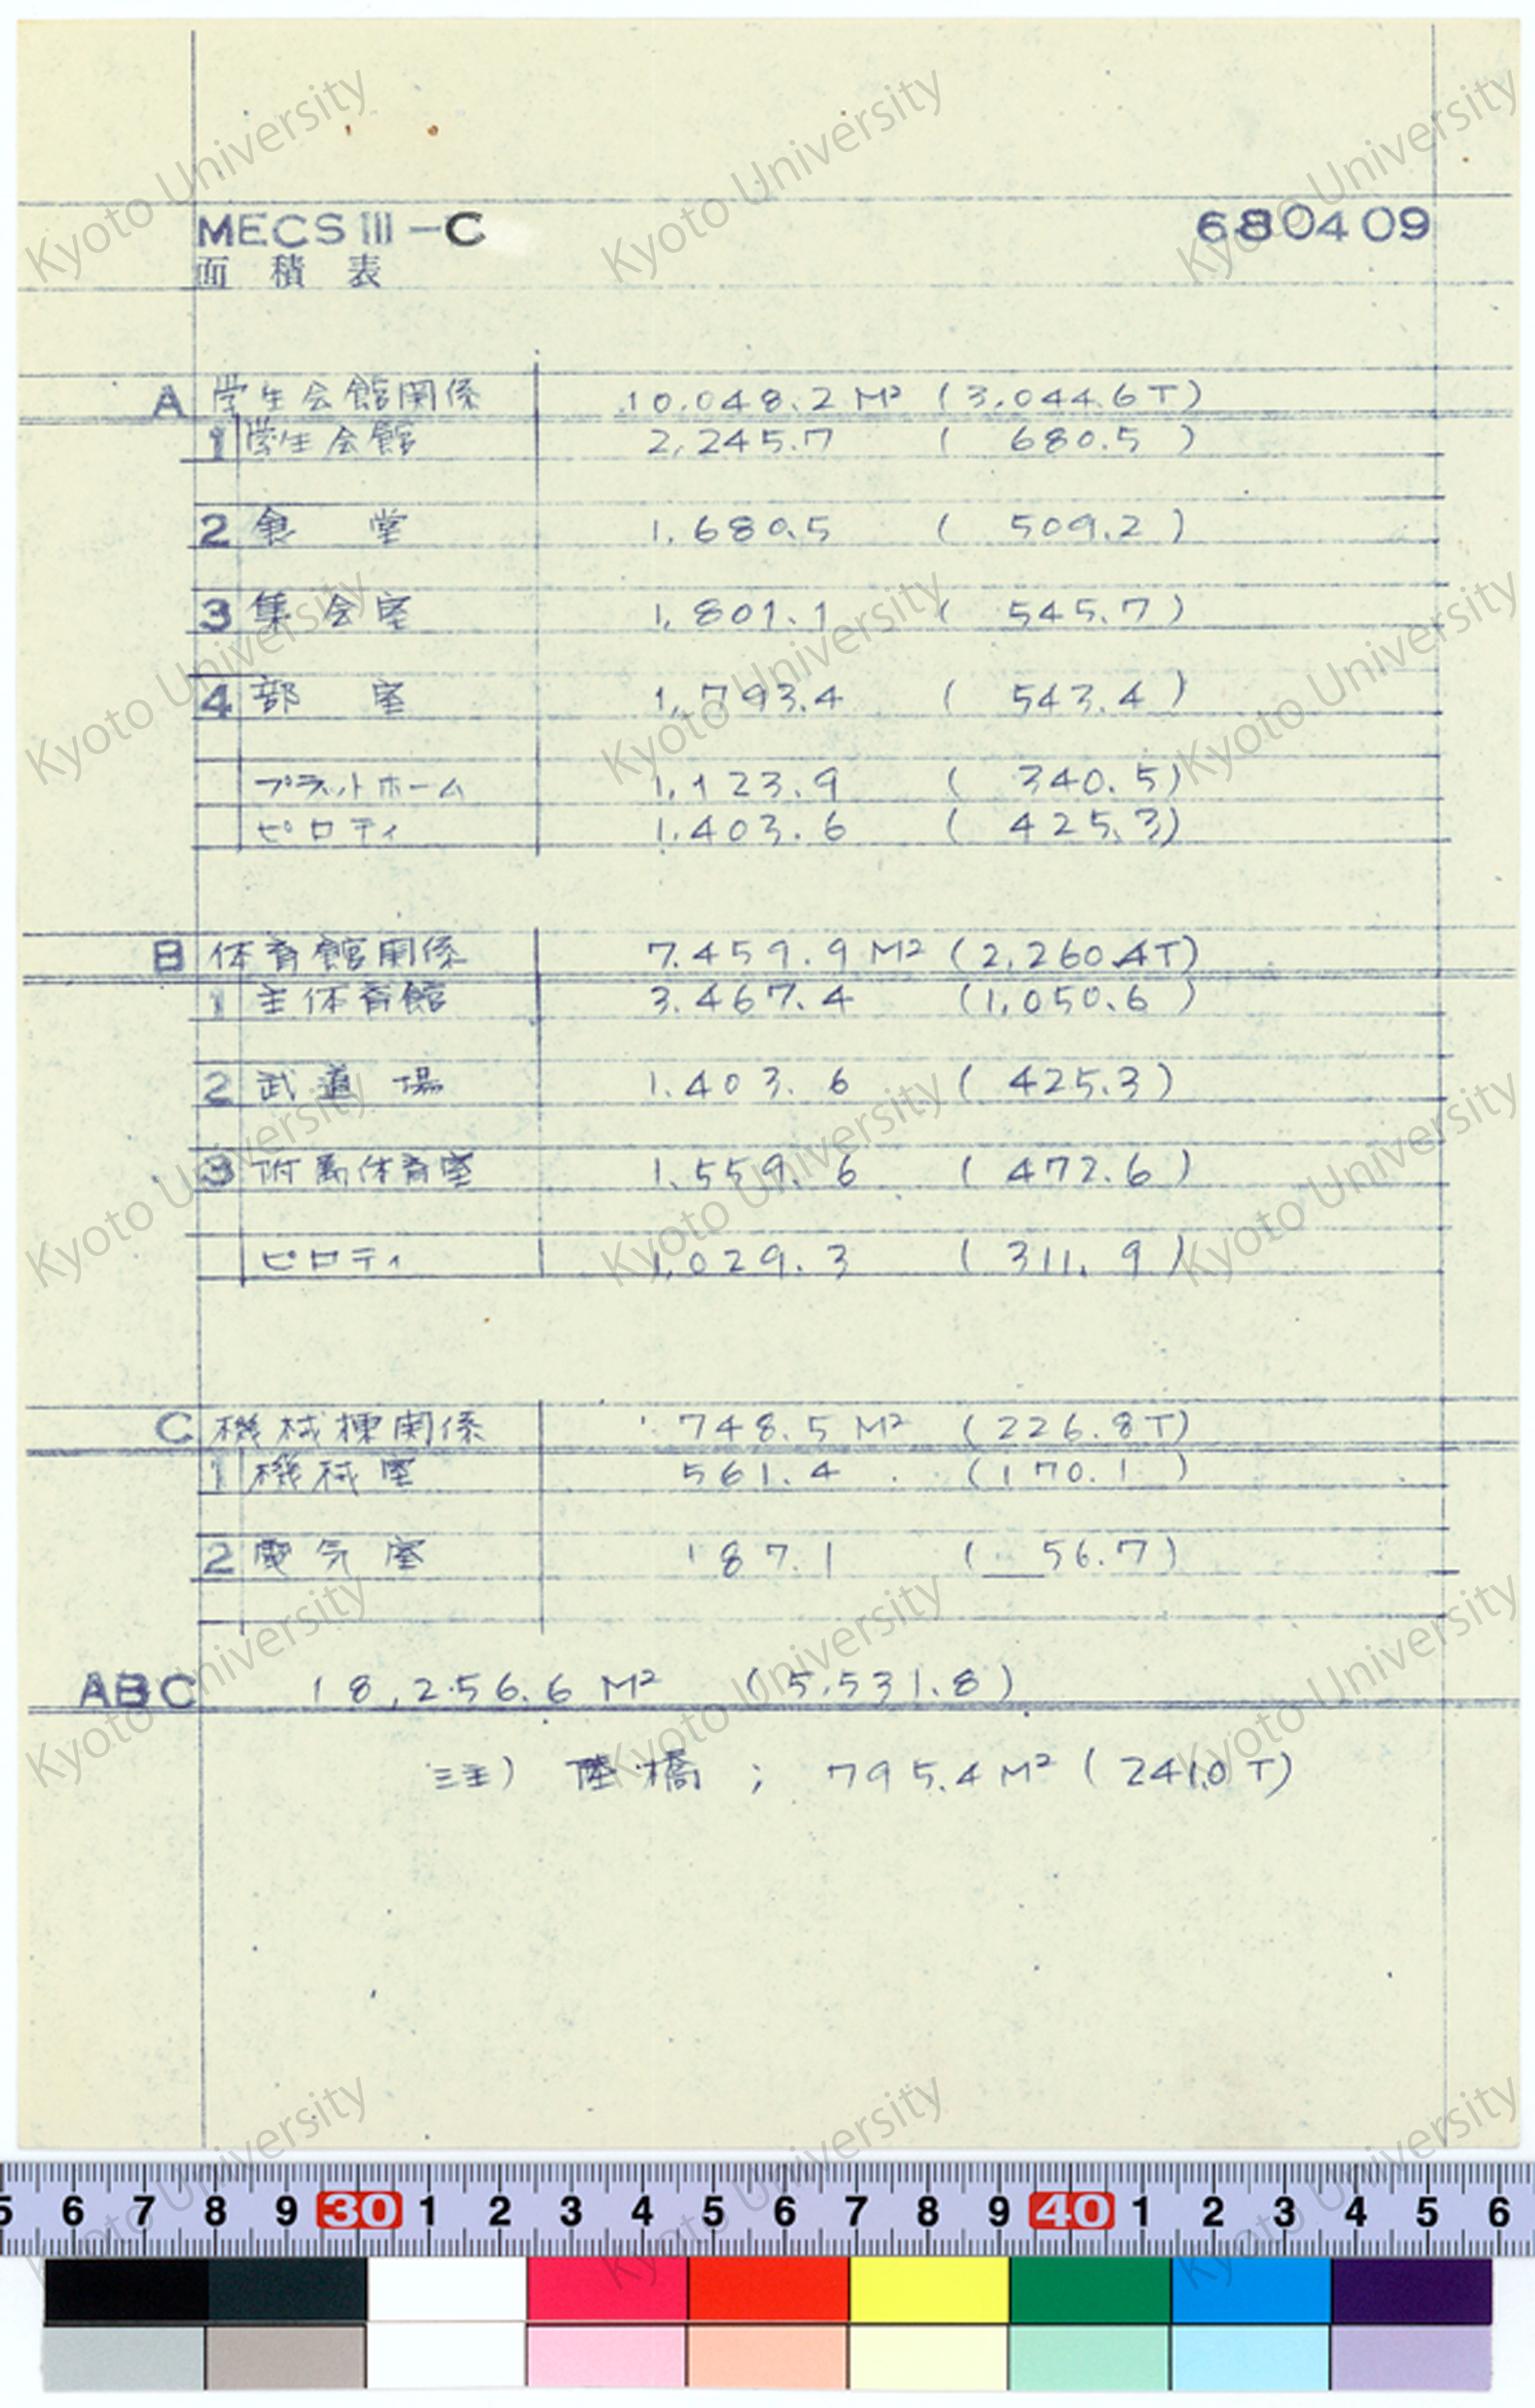 MECS III-C 680409
面積表
A 学生会館関係 10,048.2 M² (3,044.6T)
1 学生会館 2,245.7 ( 680.5 )
2 食堂 1,680.5 ( 509.2 )
3 集会室 1,801.1 ( 545.7 )
4 部室 1,793.4 ( 543.4 )
プラットホーム 1,123.9 ( 340.5 )
ピロティ 1.403.6 ( 425.3 )
B 体育館関係 7.459.9 M² (2,260.4T)
1 主体育館 3.467.4 (1,050.6 )
2 武道場 1.403.6 ( 425.3 )
3 附属体育室 1.559.6 ( 472.6 )
ピロティ 1,029.3 ( 311.9 )
C 機械棟関係 748.5 M² (226.8T)
1 機械室 561.4 (170.1 )
2 電気室 187.1 ( 56.7 )
ABC 18,256.6 M² (5,531.8)
註) 陸橋 ; 795.4 M² (241.0T)
5 6 7 8 9 30 1 2 3 4 5 6 7 8 9 40 1 2 3 4 5 6
Kyoto University